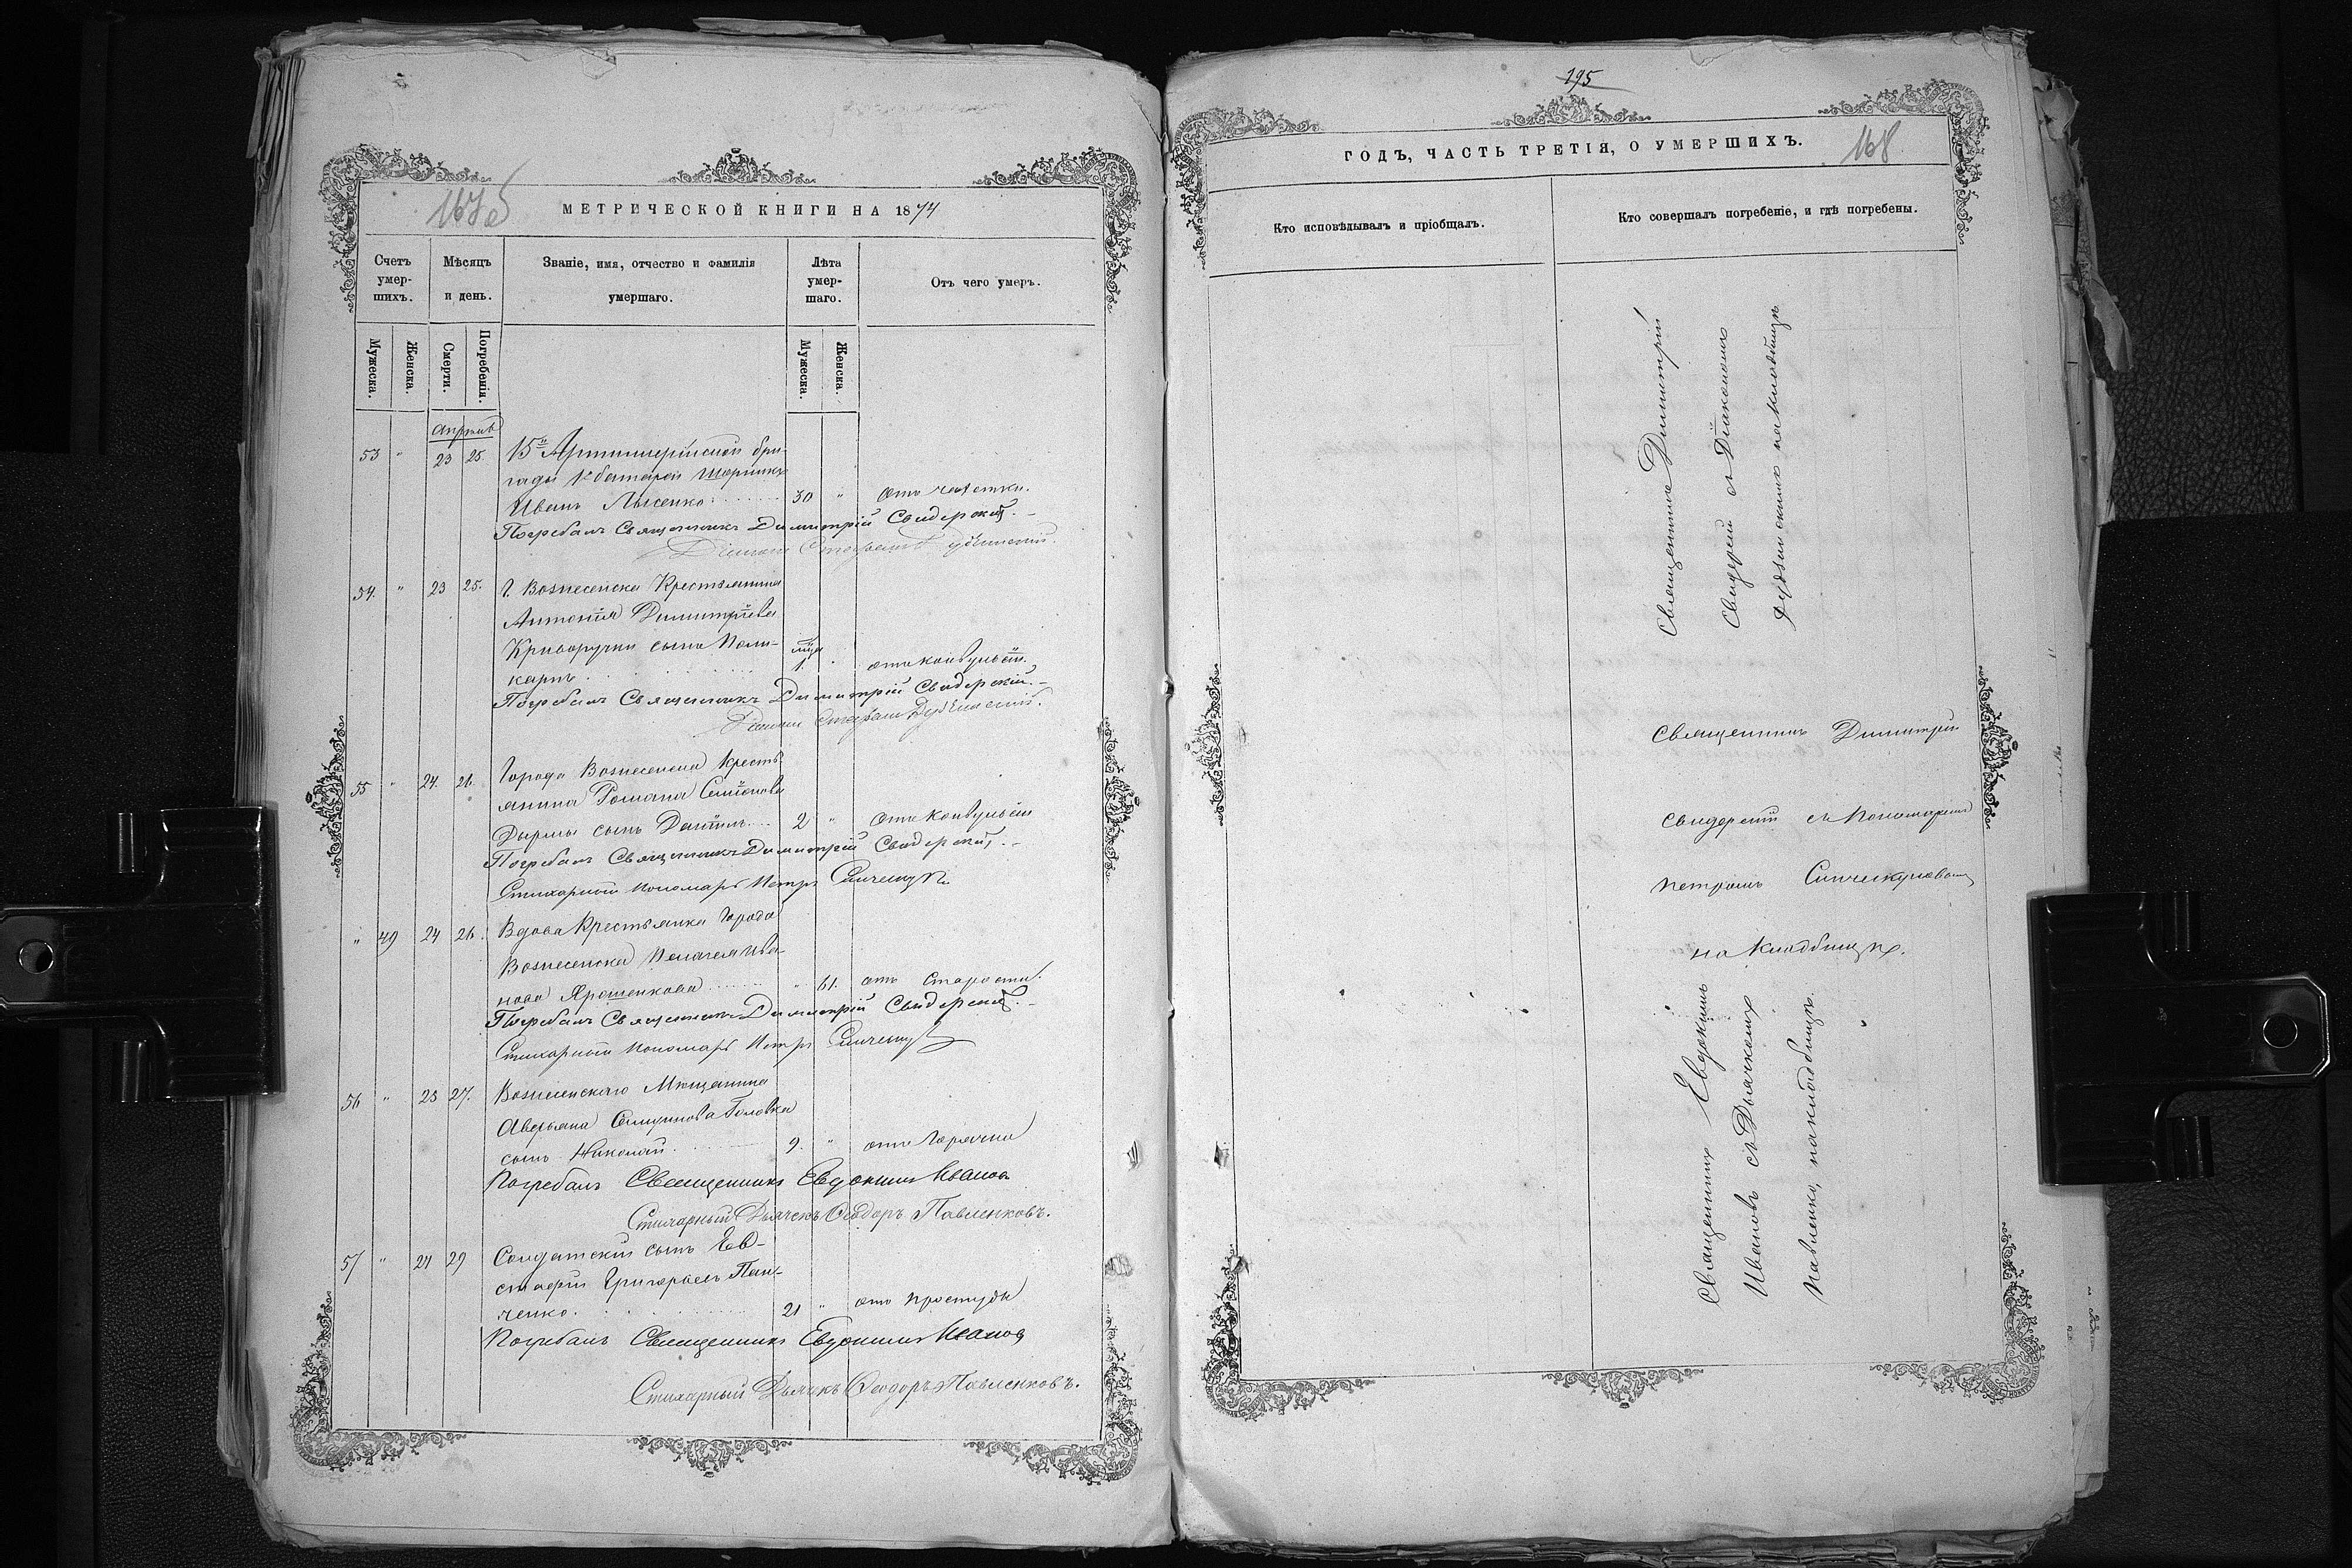 167об
МЕТРИЧЕСКОЙ КНИГИ НА 1874
Счетъ умер-шихъ.
Мѣсяцъ и день.
Званіе, имя, отчество и фамилія умершаго.
Лѣта умер-шаго.
Отъ чего умеръ.
Мужеска.
Женска.
Смерти.
Погребенія.
Мужеска.
Женска.
Апрѣль
53 " 23 25. 15й Артиллерійской бри-
гады 1й батареи Шорникъ
Иванъ Лысенко 30 " отъ чахотки.
Погребалъ Священникъ Димитрій Свидерскій.
Діаконъ Стефанъ
54. " 23 25. Г. Вознесенска Крестьянина
Антонія Димитріева
Криворучки сынъ Поли-
карпъ 1. " отъ конвульсій.
Погребалъ Священникъ Димитрій Свидерскій.
Діаконъ Стефанъ
55 " 24. 26. Города Вознесенска Кресть-
янина Романа Семіонова
Дырмы сынъ Даніилъ 2 " отъ Конвульсій
Погребалъ Священникъ Димитрій Свидерскій.
Стихарный пономарь Петръ
" 49 24 26. Вдова Крестьянка Города
Вознесенска Пелагея Ива-
нова Ярошенкова " 61. отъ Старости.
Погребалъ Священникъ Димитрій Свидерскій.
Стихарный пономарь Петръ
56 " 25 27. Вознесенскаго Мѣщанина
Аверьяна Головка
сынъ Николай 9. " отъ Горячки
Погребалъ Священникъ Евдокимъ Иванов
Стихарный Дьячекъ Ѳеодоръ Павленковъ.
57 " 27 29 Солдатскій сынъ Ев-
стафій Григорьевъ Пан-
ченко 21 " отъ простуды
Погребалъ Священникъ Евдокимъ Иванов
Стихарный Дьячекъ Ѳеодоръ Павленковъ.
195
ГОДЪ, ЧАСТЬ ТРЕТІЯ, О УМЕРШИХЪ.
168
Кто исповѣдывалъ и пріобщалъ.
Кто совершалъ погребеніе, и гдѣ погребены.
Священникъ Димитрій
Свидерскій съ Діакономъ
на Кладбищѣ
Священникъ Димитрій
Свидерскій съ Пономаремъ
Петромъ
на Кладбищѣ.
Священникъ Евдокимъ
Ивановъ съ Дьячкомъ
Павленко, на кладбищѣ.